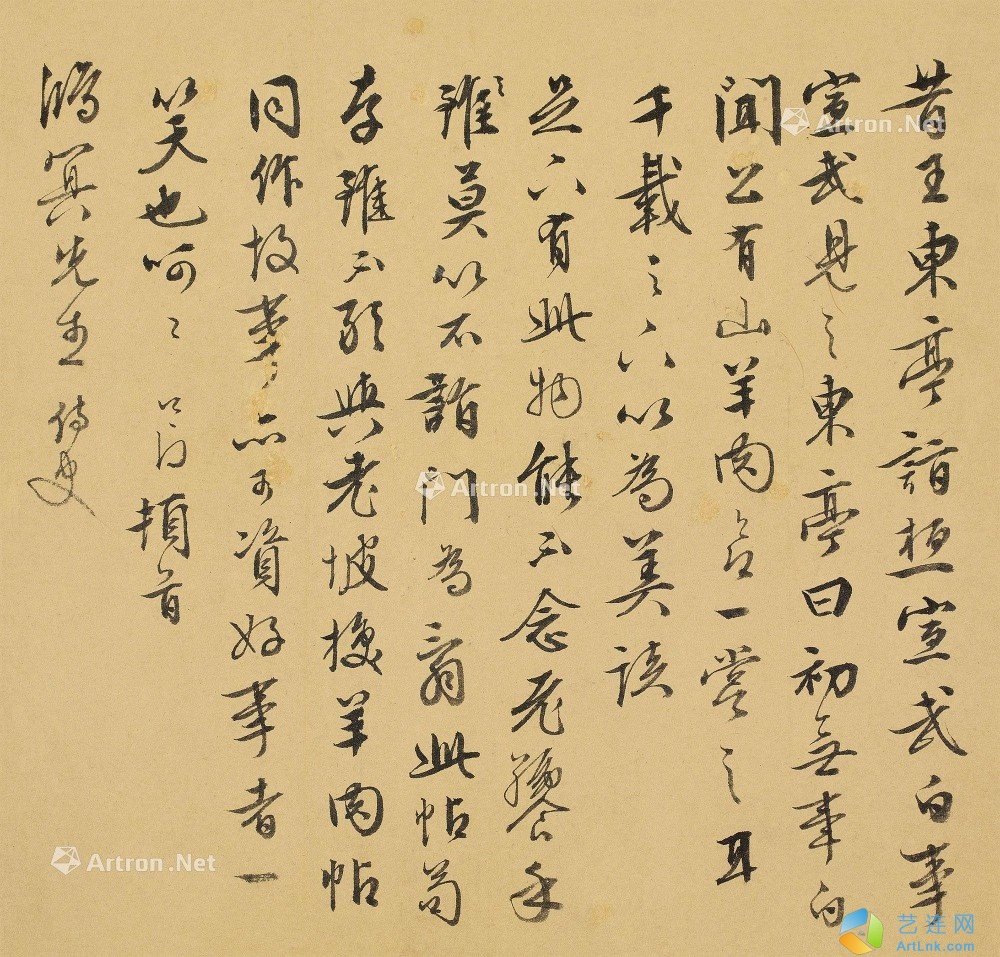 昔王東亭詣桓宣武白事
宣武見之東亭曰初無事白
聞公有山羊肉一嘗之耳
千載之下以為美談
足下有此物能不念老饕乎
雖莫以不詣門為此帖苟
存雖不能與老坡換羊肉帖
同作故事亦可資好事者一
笑也呵〻頓首
鴻冥先生 侍史
Artron.Net
Artron.Net
Artron.Net
艺连网
ArtLnk.com